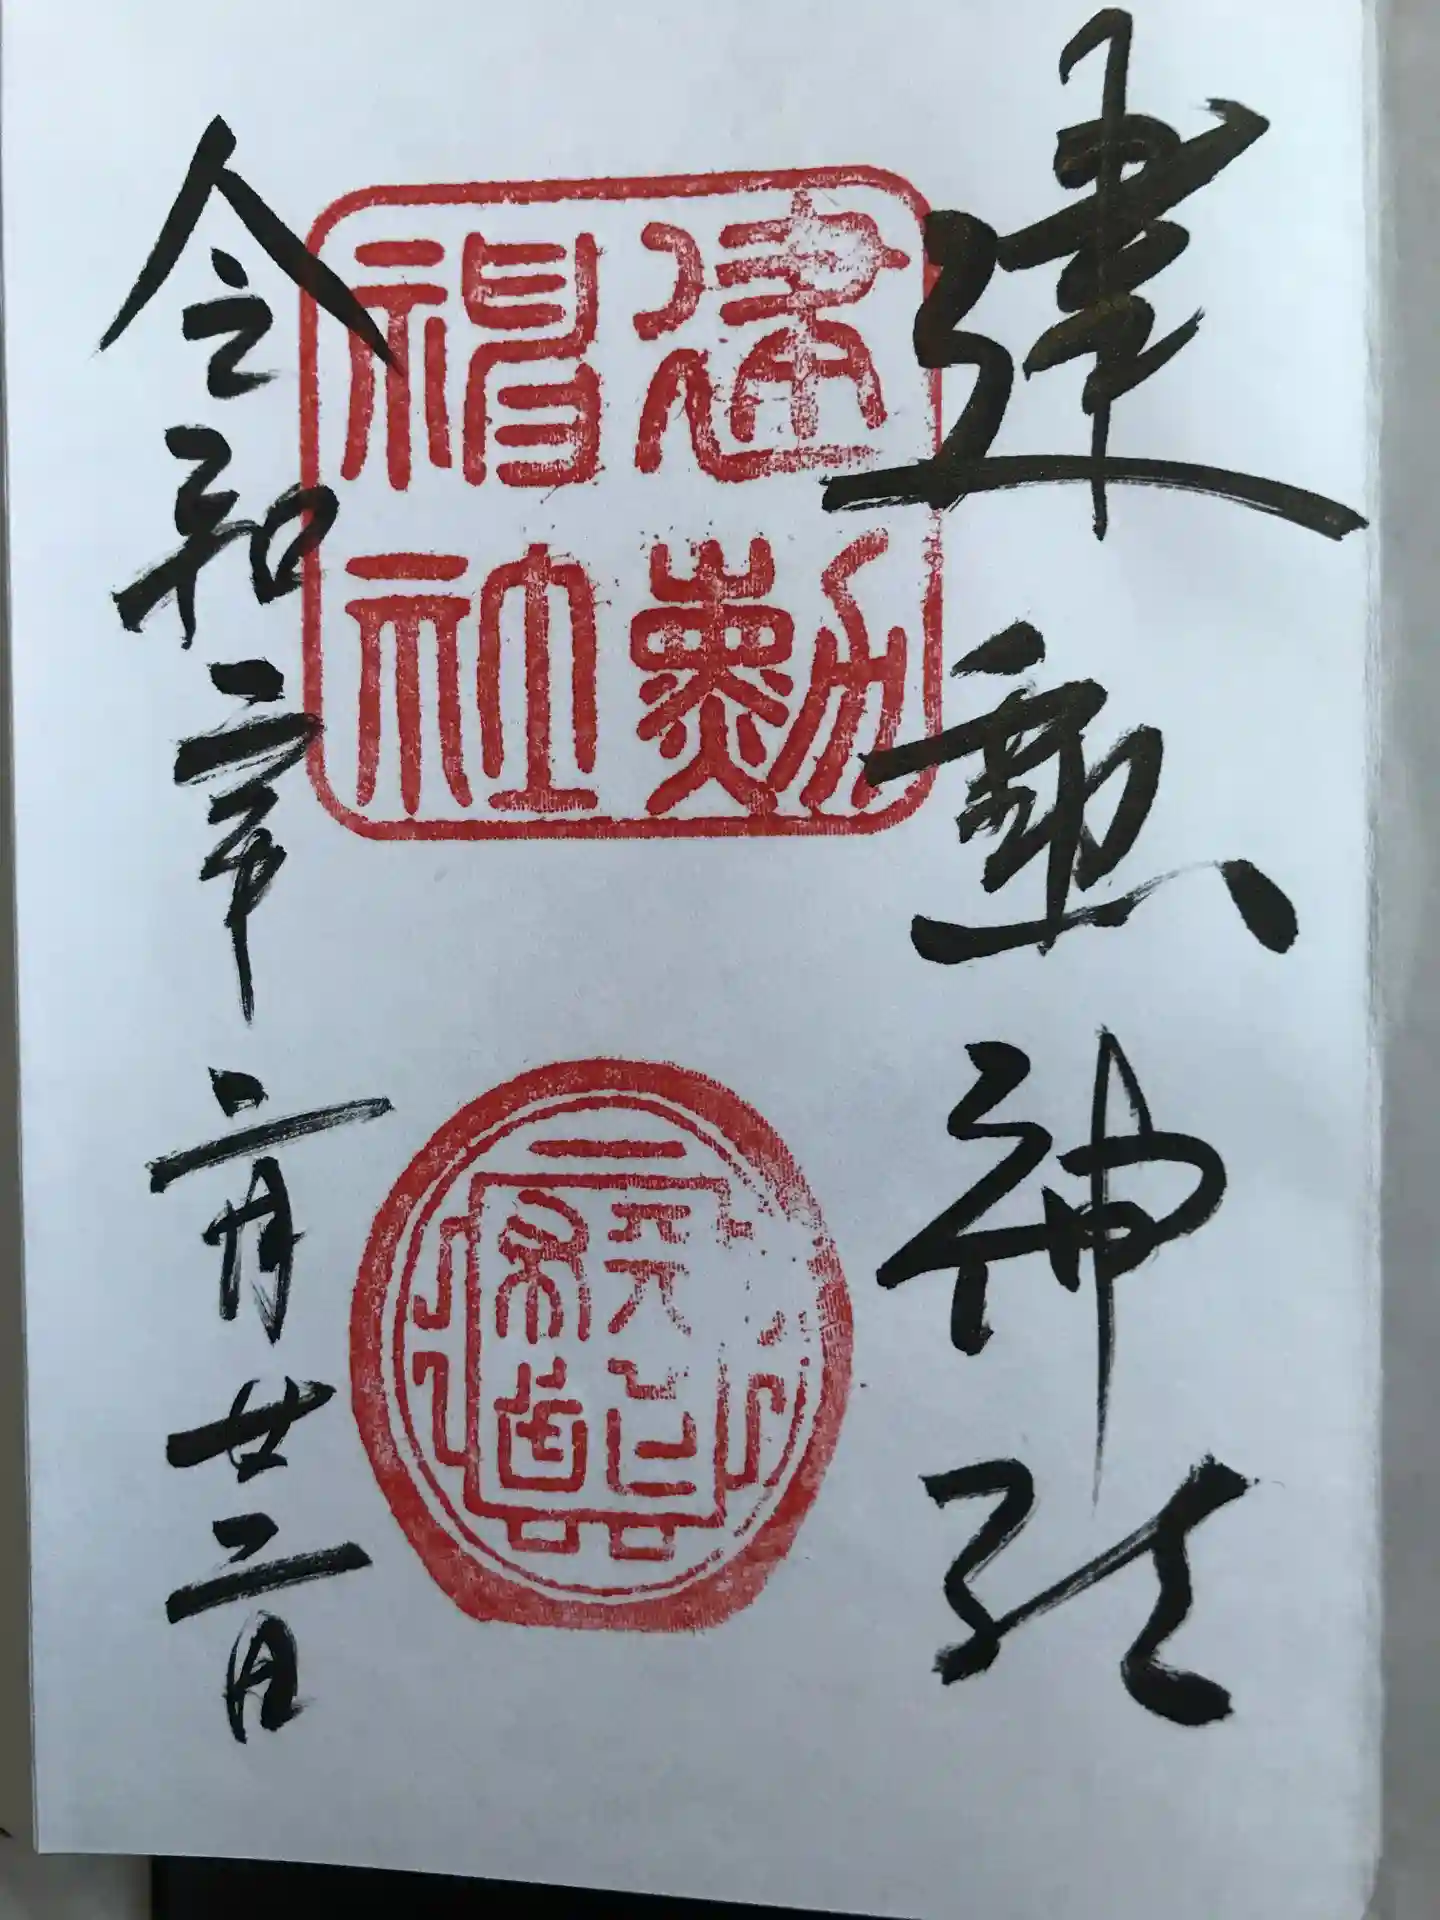 建勲神社
建勳神社
令和二年二月廿二日